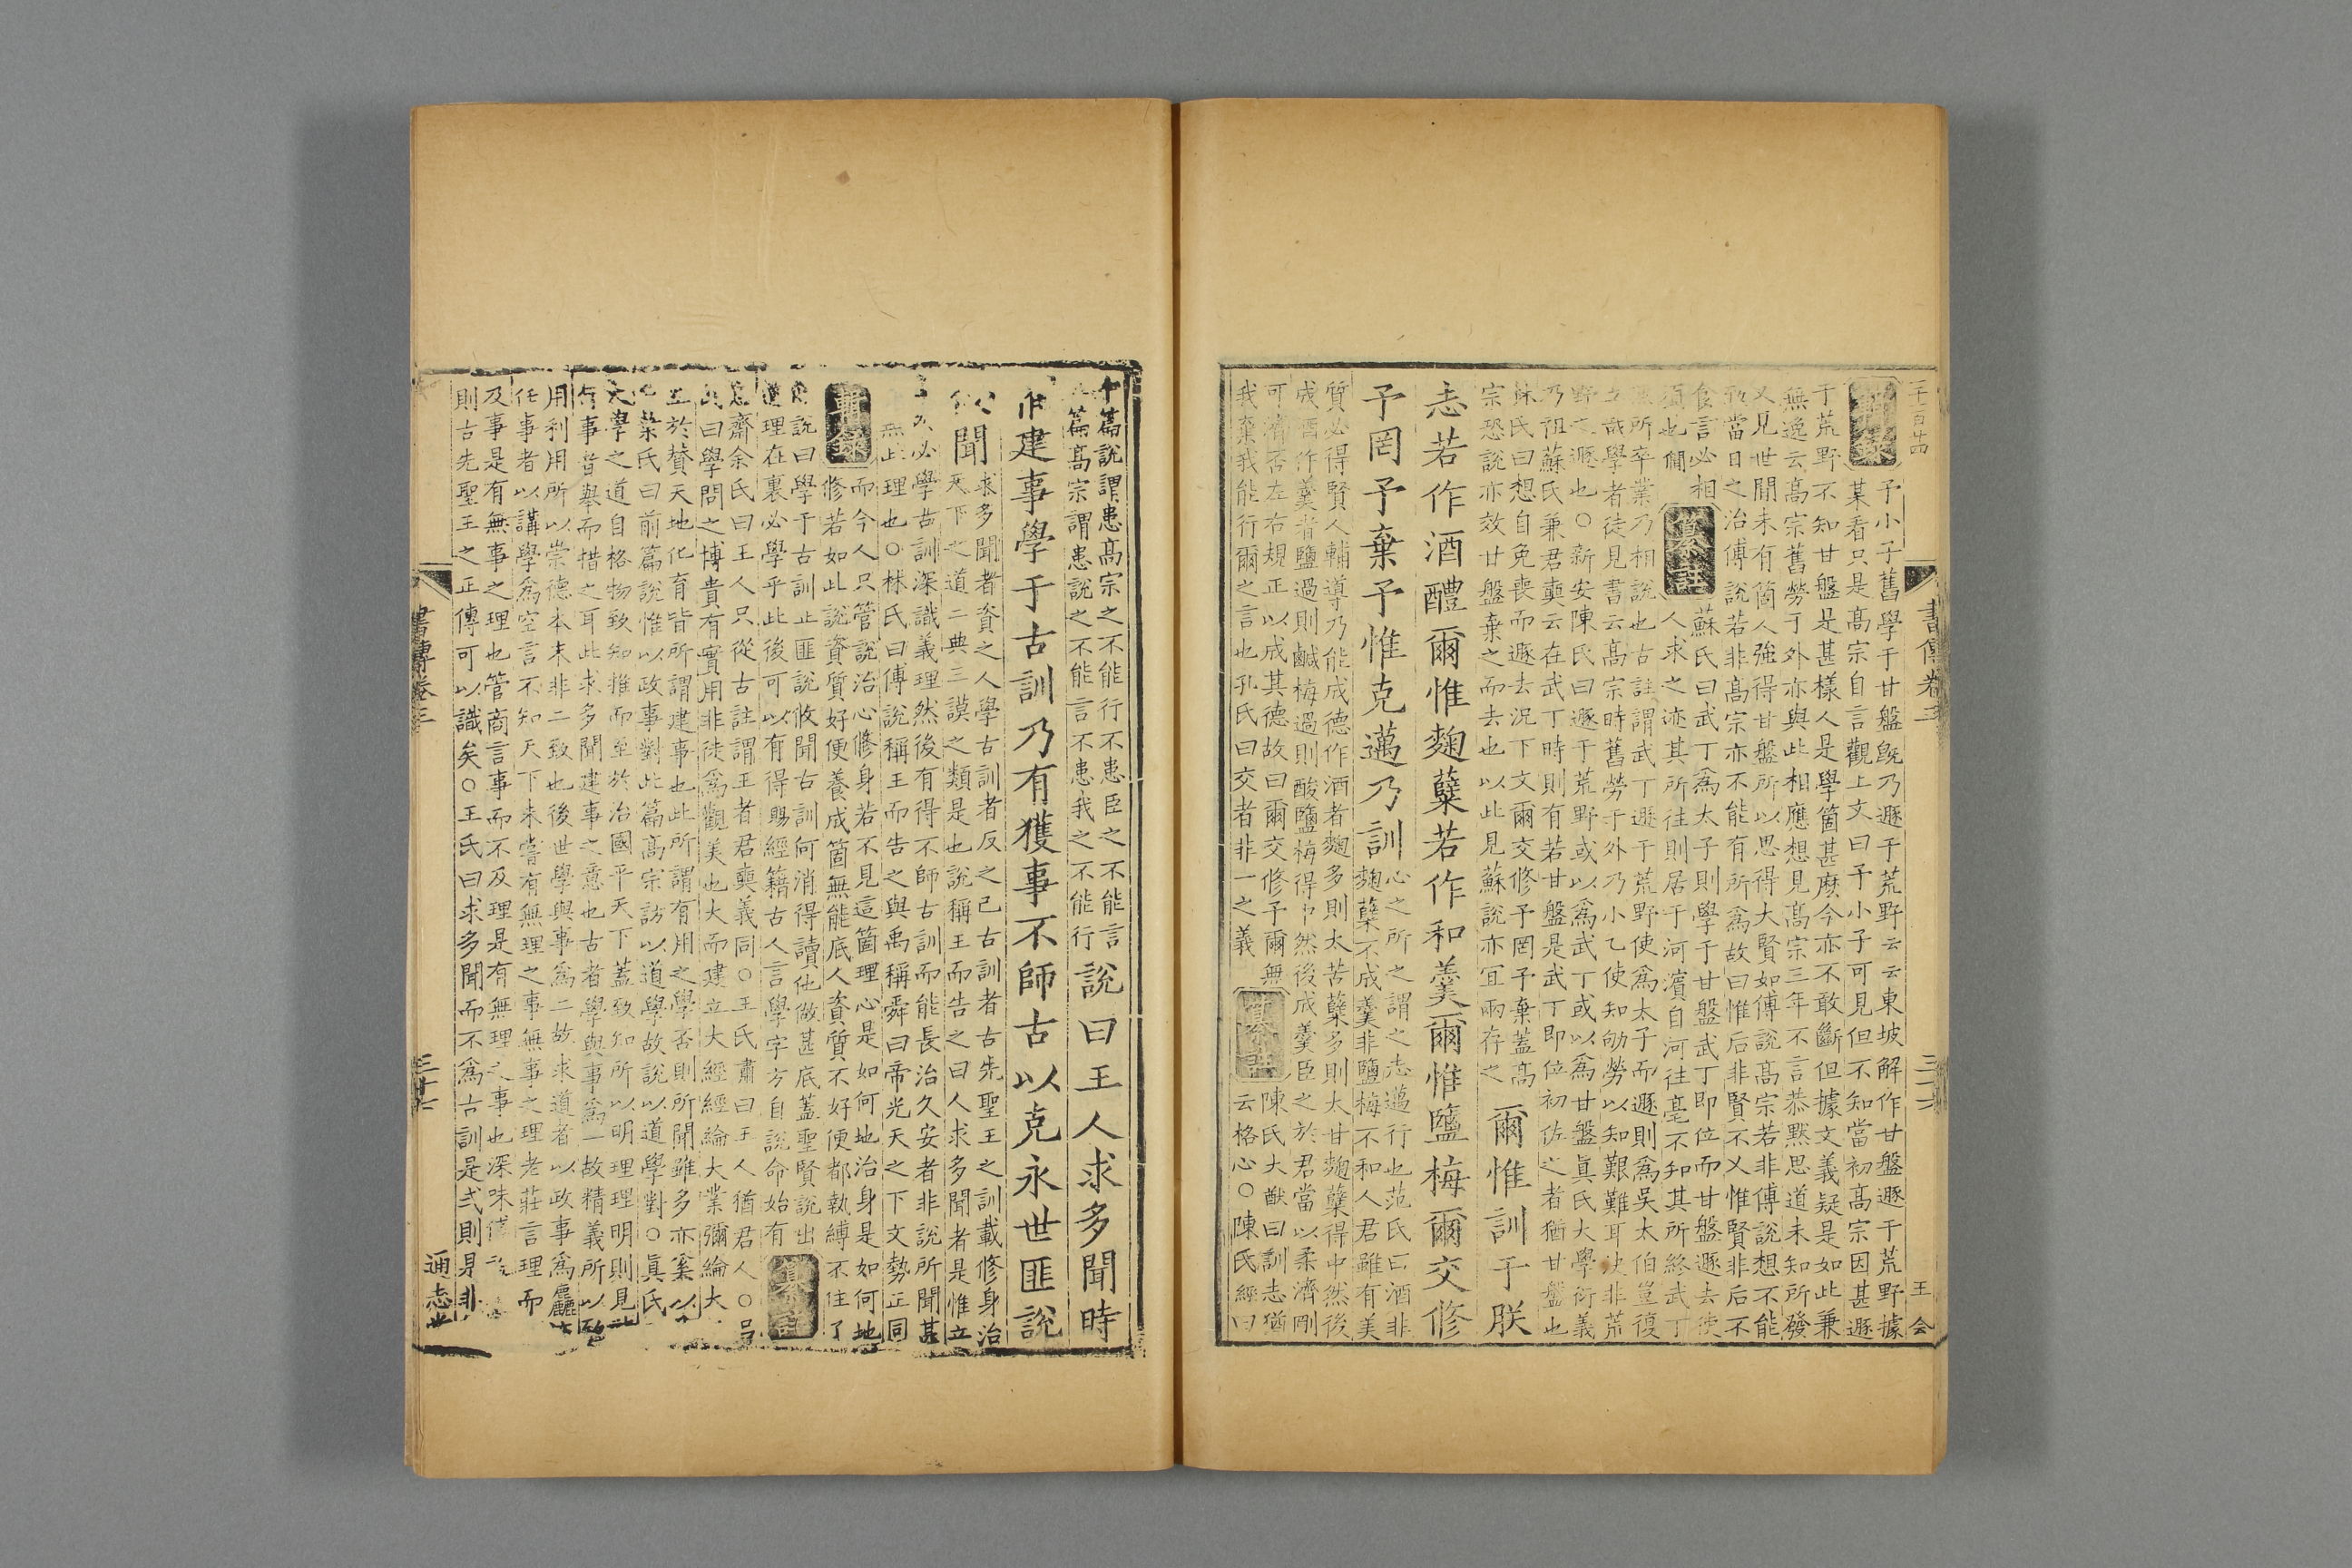 予小子舊學于甘盤旣乃遯于荒野云云東坡解作甘盤遯于荒野據
某看只是髙宗自言觀上文曰予小子可見但不知當初髙宗因甚遯
于荒野不知甘盤是甚樣人是學箇甚麽今亦不敢斷但據文義疑是如此兼
無逸云髙宗舊勞于外亦與此相應想見髙宗三年不言恭黙思道未知所發
又見世間未有箇人強得甘盤所以思得大賢如傅說髙宗若非傅說想不能
致當日之治傅說若非髙宗亦不能有所爲故曰惟后非賢不乂惟賢非后不
食言必相
須也僩
纂註
蘇氏曰武丁爲太子則學于甘盤武丁即位而甘盤遯去使
人求之迹其所往則居于河濵自河徃亳不知其所終武丁
無所卒業乃相說也古註謂武丁遯于荒野使爲太子而遯則爲吳太伯豈復
立哉學者徒見書云髙宗時舊勞于外乃小乙使知劬勞以知艱難耳決非荒
野之遯也○新安陳氏曰遯于荒野或以爲武丁或以爲甘盤眞氏大學衍義
乃祖蘇氏兼君奭云在武丁時則有若甘盤是武丁即位初佐之者猶甘盤也
林氏曰想自免喪而遯去況下文爾交修予罔予棄蓋髙
宗恐說亦效甘盤棄之而去也以此見蘇說亦宜兩存之
爾惟訓于朕
志若作酒醴爾惟麴糵若作和羹爾惟鹽梅爾交修
予罔予棄予惟克邁乃訓
心之所之謂之志邁行也范氏曰酒非
麴糵不成羹非鹽梅不和人君雖有美
質必得賢人輔導乃能成德作酒者麴多則太苦糵多則太甘麴糵得中然後
成酒作羹者鹽過則鹹梅過則酸鹽梅得中然後成羹臣之於君當以柔濟剛
可濟否左右規正以成其德故曰爾交修予爾無
我棄我能行爾之言也孔氏曰交者非一之義
纂註
陳氏大猷曰訓志猶
云格心○陳氏經曰
書傳卷三
王 会
中篇說謂患髙宗之不能行不患臣之不能言
篇髙宗謂患說之不能言不患我之不能行
說曰王人求多聞時
惟建事學于古訓乃有獲事不師古以克永世匪說
攸聞
求多聞者資之人學古訓者反之己古訓者古先聖王之訓載修身治
天下之道二典三謨之類是也說稱王而告之曰人求多聞者是惟立
事然必學古訓深識義理然後有得不師古訓而能長治久安者非說所聞甚
無此理也○林氏曰傅說稱王而告之與禹稱舜曰帝光天之下文勢正同
輯錄
而今人只管說治心修身若不見這箇理心是如何地治身是如何地
修若如此說資質好便養成箇無能底人資質不好便都執縛不住了
傅說曰學于古訓止匪說攸聞古訓何消得讀他做甚底蓋聖賢說出
道理在裏必學乎此後可以有得賜經籍古人言學字方自說命始有
纂註
息齋余氏曰王人只從古註謂王者君奭義同○王氏肅曰王人猶君人○呂
氏曰學問之博貴有實用非徒爲觀美也大而建立大經經綸大業彌綸大
至於賛天地化育皆所謂建事也此所謂有用之學否則所聞雖多亦奚以
葉氏曰前篇說惟以政事對此篇髙宗訪以道學故說以道學對○眞氏
大學之道自格物致知推而至於治國平天下蓋致知所以明理理明則見
行事皆舉而措之耳此求多聞建事之意也古者學與事爲一故精義所以致
用利用所以崇德本末非二致也後世學與事爲二故求道者以政事爲麤
任事者以講學爲空言不知天下未嘗有無理之事無事之理老莊言理而
及事是有無事之理也管商言事而不及理是有無理之事也深味傅
則古先聖王之正傳可以識矣○王氏曰求多聞而不爲古訓是式則是非
書傳卷三
通志